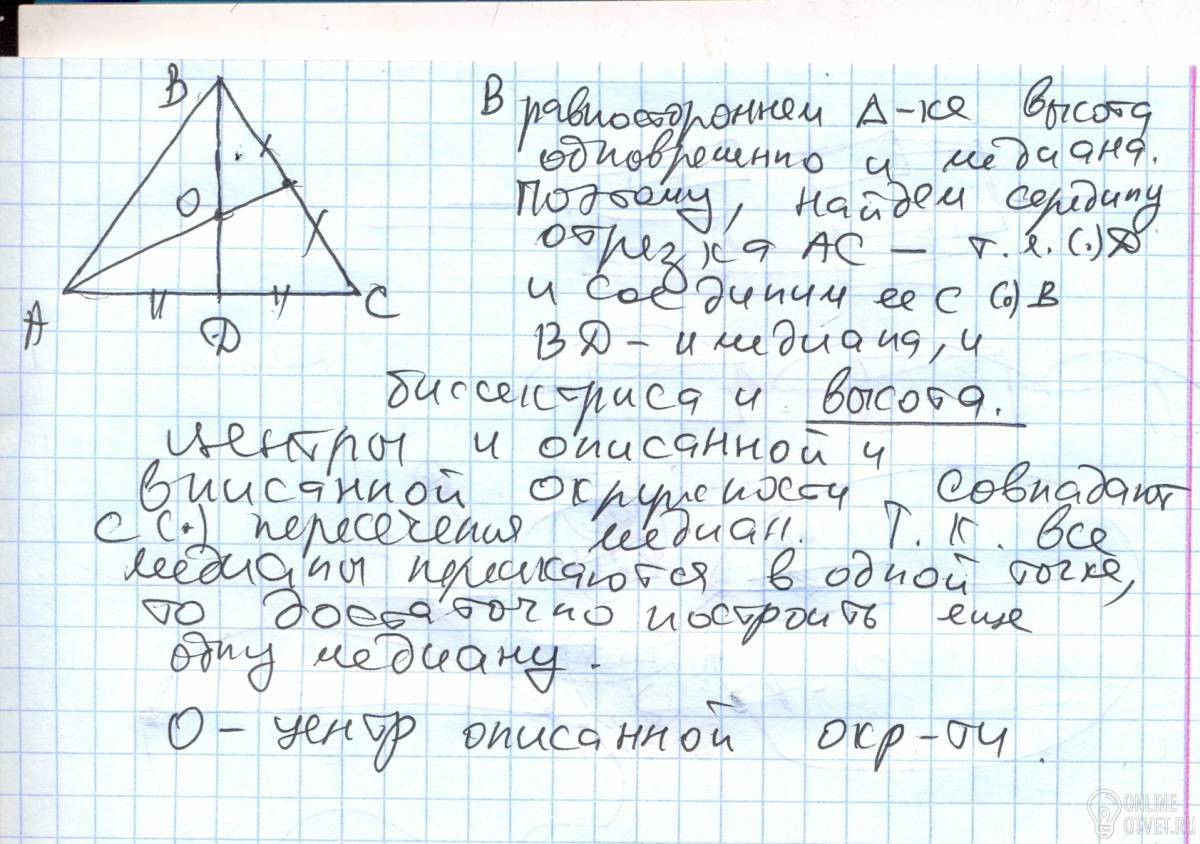 В
О
А
D
С
В равностороннем Δ-ке высота
одновременно и медиана.
Поэтому, найдем середину
отрезка АС — т.е. (.) D
и соединим ее с (.) В
ВD – и медиана, и
биссектриса и высота.
Центры и описанной и
вписанной окружности совпадают
с (.) пересечения медиан. Т.к. все
медианы пересекаются в одной точке,
то достаточно построить еще
одну медиану.
О – центр описанной окр-ти.
ONLINE
OTVET.RU